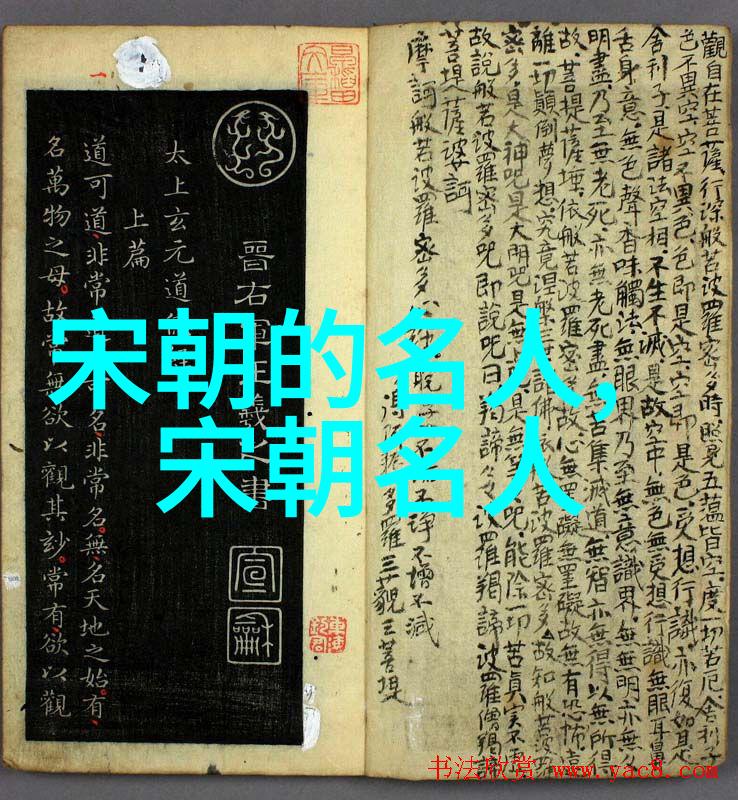 宋朝的名人,
宋朝名人
觀自在菩薩行深般若波羅密多時照見五蘊皆空度一切苦厄舍利子
色不異空空不異色色即是空空即是色受想行識亦復如是
舍利子是諸法空相不生不滅是故空中無色無受想行識無眼耳鼻
舌身意無色聲香味觸法無眼界乃至無意識界無無明亦無
明盡乃至無老死亦無老死盡無苦集滅道無智亦無得以無所得
故菩提薩埵依般若波羅密多故心無罣礙無罣礙故無有恐怖遠
離一切顛倒夢想究竟涅槃三諸佛依若波羅密多故知般若波
密多是大神咒是大明咒是無是無咒能除一切苦真實不
故說般若波羅密多咒即說咒曰揭諦波羅揭諦波羅僧揭諦
菩提薩婆訶
摩訶般若波羅密多
不增不減
多羅三藐三菩提
晉右軍王羲之書
宣龢
太上玄元道
上篇
道可道非常名非常名無名天地之始有
名萬物之母故常無欲以觀其妙常有欲以觀
书法欣赏 www.yac8.com